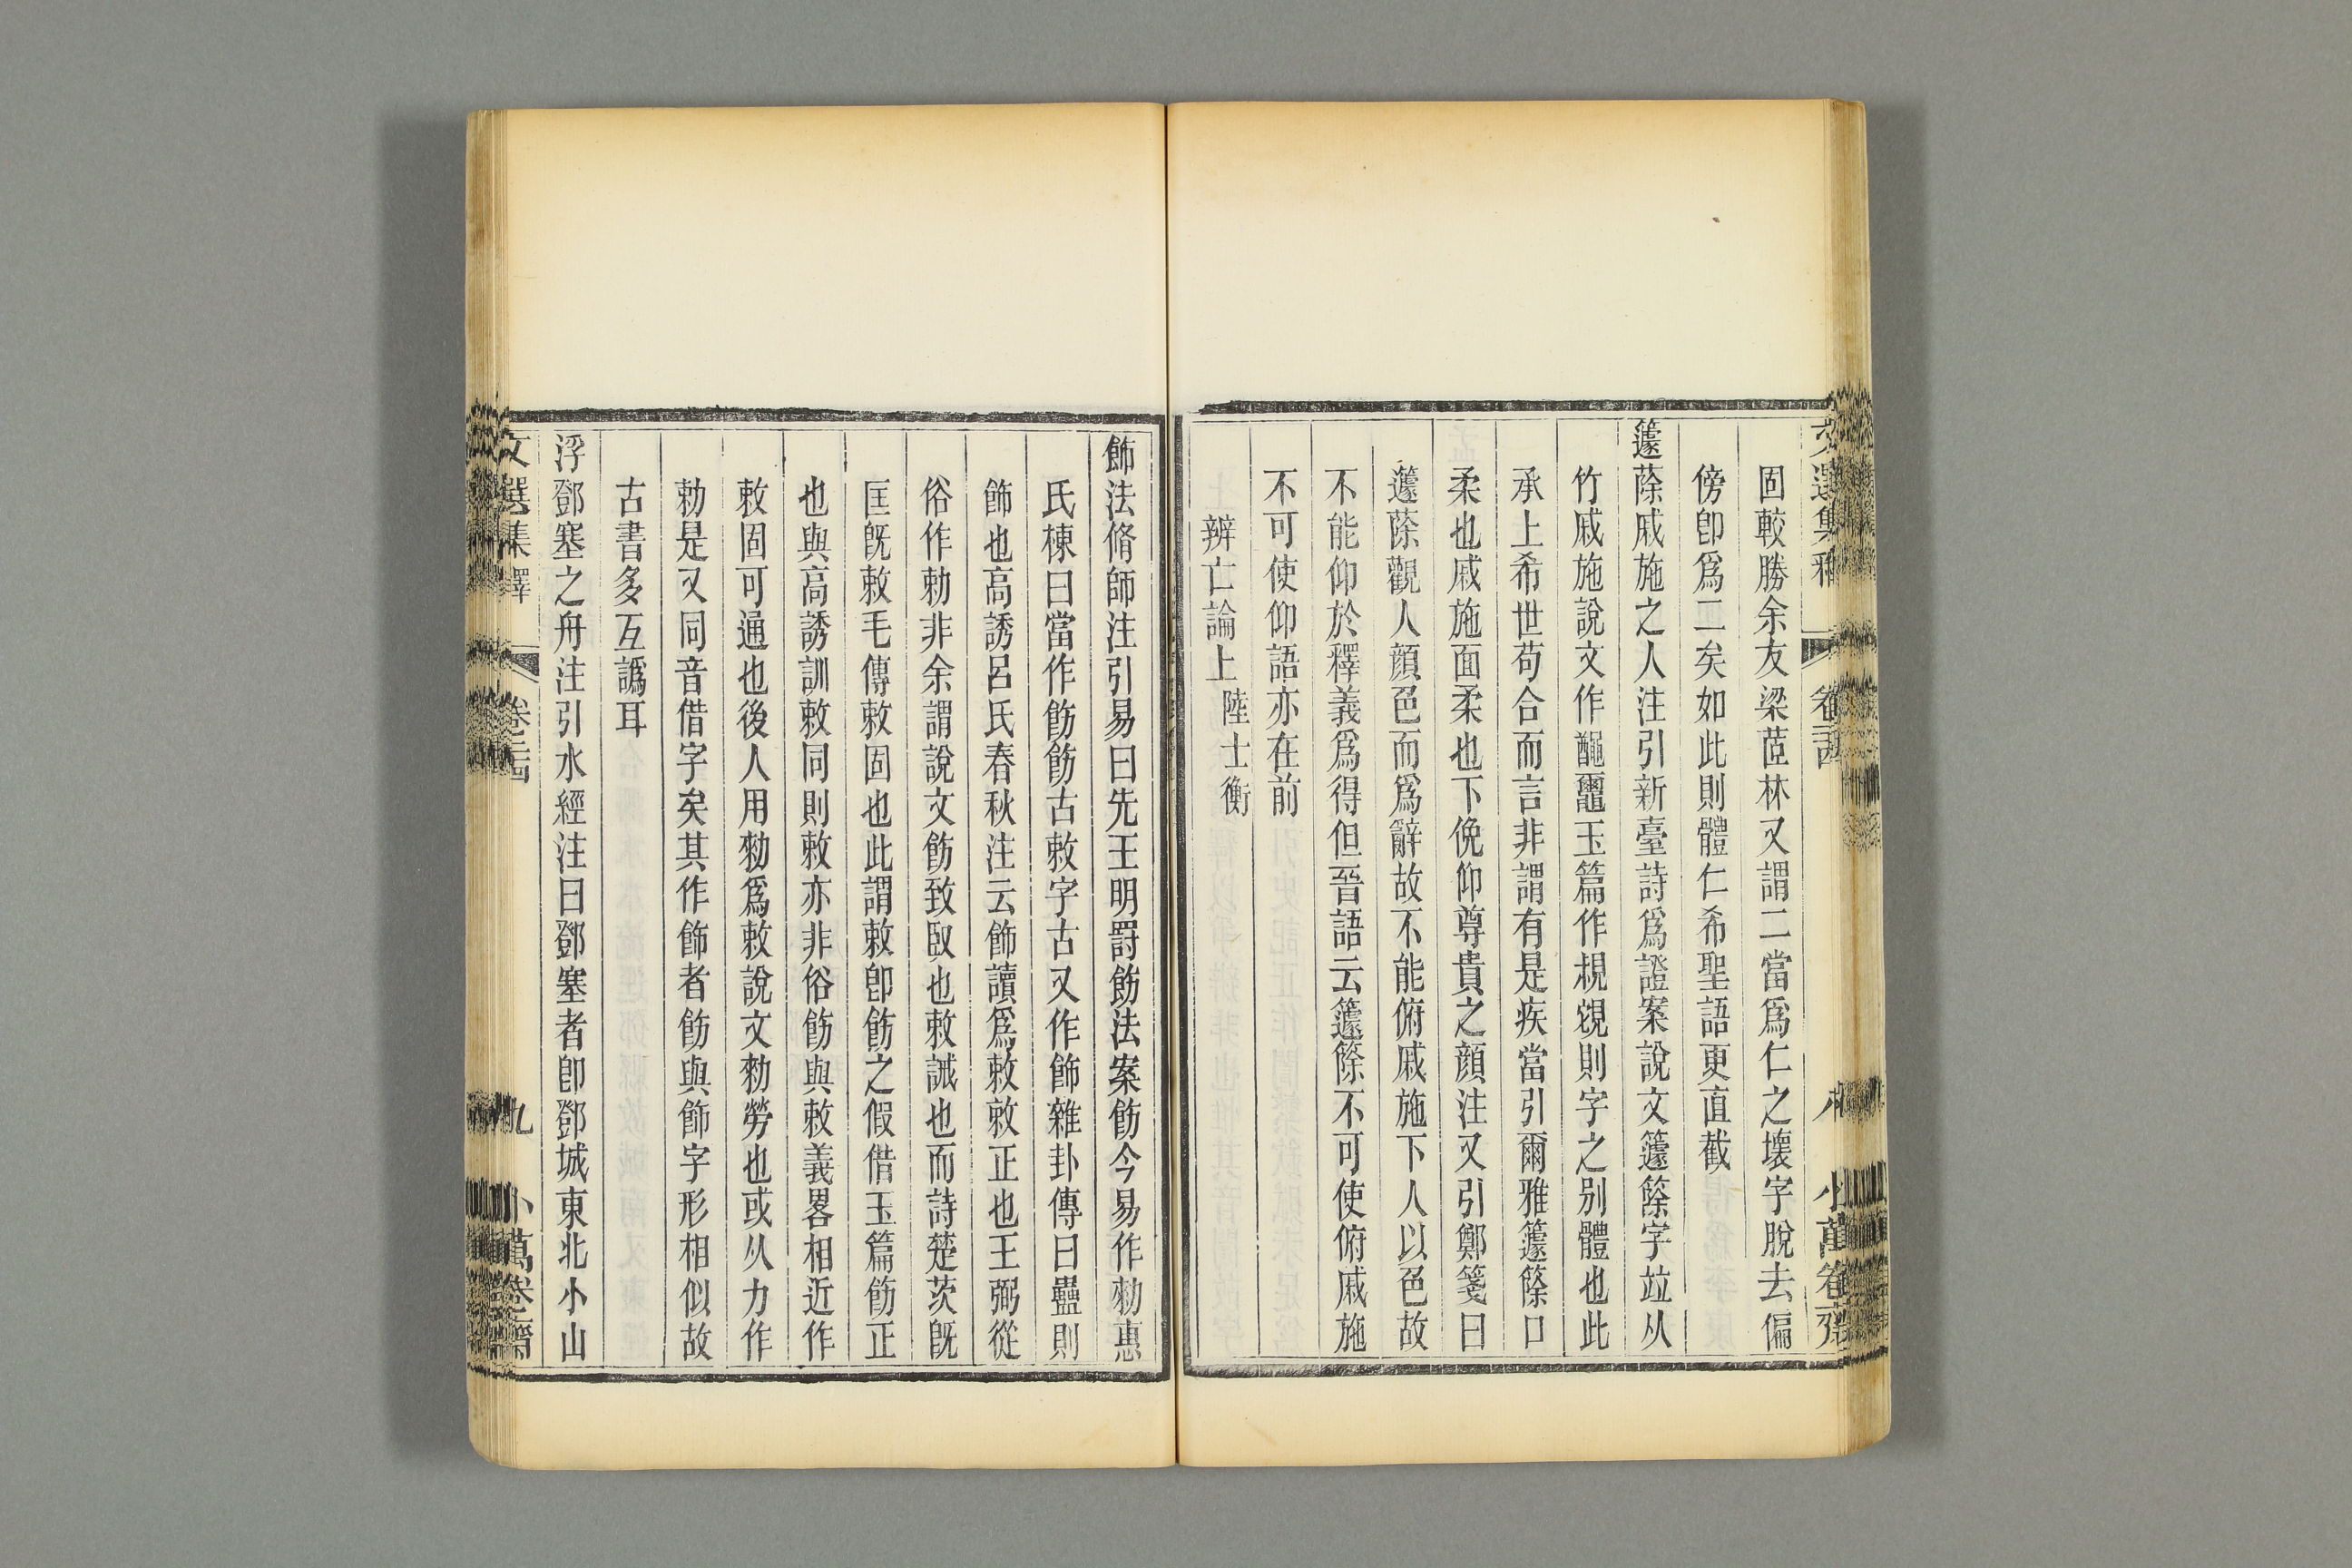 固較勝余友梁茝林又謂二當爲仁之壞字脫去偏
傍卽爲二矣如此則體仁希聖語更直截
籧蒢戚施之人注引新臺詩爲證案說文籧篨字竝从
竹戚施說文作𪓰𪓿玉篇作規覒則字之別體也此
承上希世苟合而言非謂有是疾當引爾雅籧篨口
柔也戚施面柔也下俛仰尊貴之顏注又引鄭箋曰
籧蒢觀人顏色而爲辭故不能俯戚施下人以色故
不能仰於釋義爲得但晉語云籧篨不可使俯戚施
不可使仰語亦在前
辨亡論上 陸士衡
飾法脩師注引易曰先王明罰飭法案飭今易作勑惠
氏棟曰當作飭飭古敕字古又作飾雜卦傳曰蠱則
飾也高誘呂氏春秋注云飾讀爲敕敕正也王弼從
俗作勅非余謂說文飭致臤也敕誡也而詩楚茨旣
匡旣敕毛傳敕固也此謂敕卽飭之假借玉篇飭正
也與高誘訓敕同則敕亦非俗飭與敕義畧相近作
敕固可通也後人用勑爲敕說文勑勞也或从力作
勅是又同音借字矣其作飾者飭與飾字形相似故
古書多互譌耳
浮鄧塞之舟注引水經注曰鄧塞者卽鄧城東北小山
文選集釋 卷二十四 九 小萬卷齋